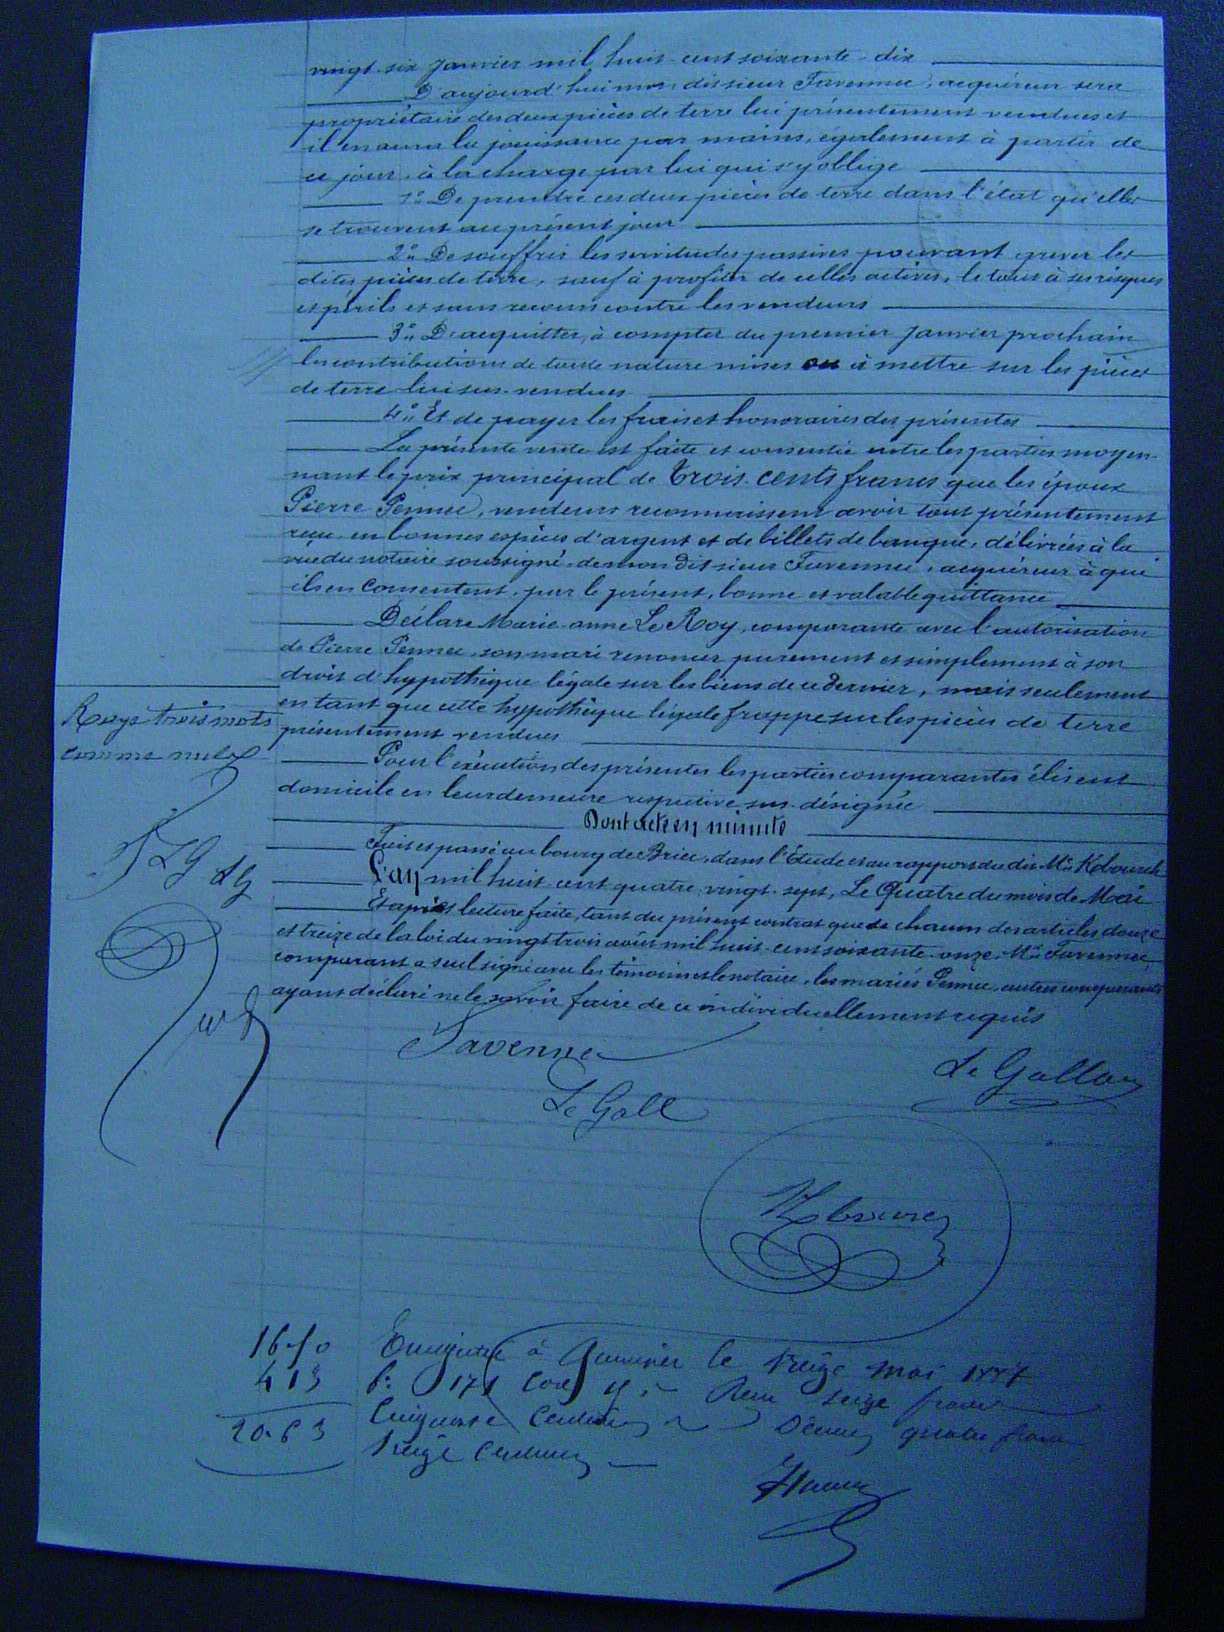 vingt-six janvier mil huit-cent soixante-dix
D'aujourd'hui mon dit sieur Favennec, acquéreur sera
propriétaire des deux pièces de terre lui présentement vendues et
il en aura la jouissance par mains, également à partir de
ce jour, à la charge par lui qui s'y oblige
1º De prendre ces deux pièces de terre dans l'état qu'elles
se trouvent au présent jour
2º De souffrir les servitudes passives pouvant grever les
dites pièces de terre, sauf à profiter de celles actives, le tout à ses risques
et périls et sans recours contre les vendeurs
3º D'acquitter, à compter du premier janvier prochain
les contributions de toute nature mises ou à mettre sur les pièces
de terre lui sus-vendues
4º Et de payer les frais et honoraires des présentes
La présente vente est faite et consentie entre les parties moyen-
nant le prix principal de Trois cents francs que les époux
Pierre Pennec, vendeurs reconnaissent avoir tout présentement
reçu en bonnes espèces d'argent et de billets de banque, délivrées à la
vue du notaire soussigné, de mon dit sieur Favennec, acquéreur à qui
ils en consentent, par le présent, bonne et valable quittance
Déclare Marie-anne Le Roy, comparante avec l'autorisation
de Pierre Pennec, son mari renoncer purement et simplement à son
droit d'hypothèque légale sur les biens de ce dernier, mais seulement
en tant que cette hypothèque légale frappe sur les pièces de terre
présentement vendues
Rayé trois mots
comme nuls
Pour l'exécution des présentes les parties comparantes élisent
domicile en leur demeure respective sus-désignée
Dont acte en minute
Fait et passé au bourg de Briec, dans l'Etude et au rapport du dit Me
L'an mil huit cent quatre-vingt-sept, Le Quatre du mois de Mai
Et après lecture faite, tant du présent contrat que de chacun des articles douze
et treize de la loi du vingt trois août mil huit-cent soixante-onze, Mr Favennec,
comparant a seul signé avec les témoins et le notaire, les mariés Pennec, autres comparants
ayant déclaré ne le savoir faire de ce individuellement requis
Favennec
Le Gall
16.50
4 13
20.63
Enregistré à Quimper le treize mai 1887
fº 171 Reçu seize francs
Cinquante Centimes Décimes quatre francs
treize Centimes